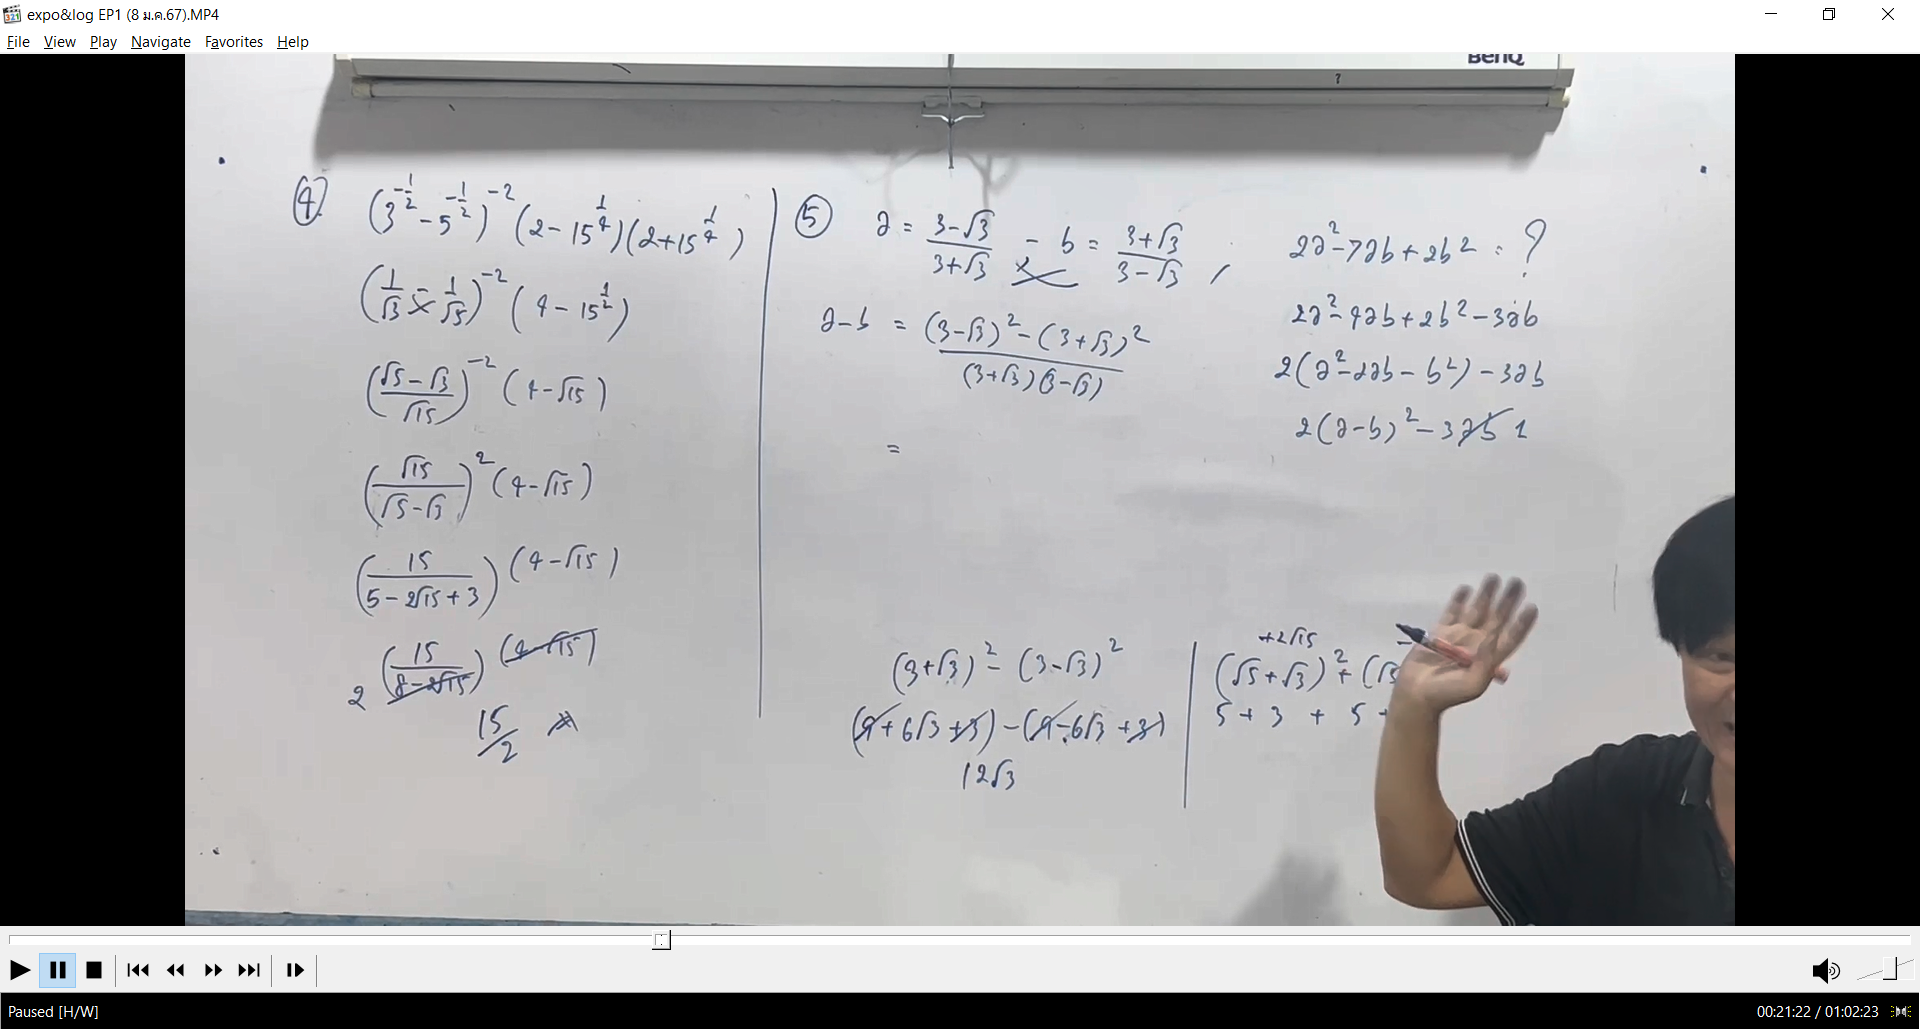 expo&log EP1 (8 ม.ค.67).MP4
File View Play Navigate Favorites Help
BenQ
④. (3^{-1/2} - 5^{-1/2})^{-2} (2 - 15^{1/4})(2 + 15^{1/4})
(1/√3 - 1/√5)^{-2} (4 - 15^{1/2})
((√5 - √3)/√15)^{-2} (4 - √15)
(√15/(√5 - √3))^2 (4 - √15)
(15/(5 - 2√15 + 3)) (4 - √15)
2 (15/(8 - 2√15)) (4 - √15)
15/2
⑤ a = (3 - √3)/(3 + √3) - b = (3 + √3)/(3 - √3) , 2a^2 - 7ab + 2b^2 = ?
a - b = ((3 - √3)^2 - (3 + √3)^2)/((3 + √3)(3 - √3))
=
2a^2 - 4ab + 2b^2 - 3ab
2(a^2 - 2ab - b^2) - 3ab
2(a - b)^2 - 3ab 1
(3 + √3)^2 - (3 - √3)^2
(9 + 6√3 + 3) - (9 - 6√3 + 3)
12√3
+2√15
(√5 + √3)^2 + (√3
5 + 3 + 5 +
Paused [H/W]
00:21:22 / 01:02:23